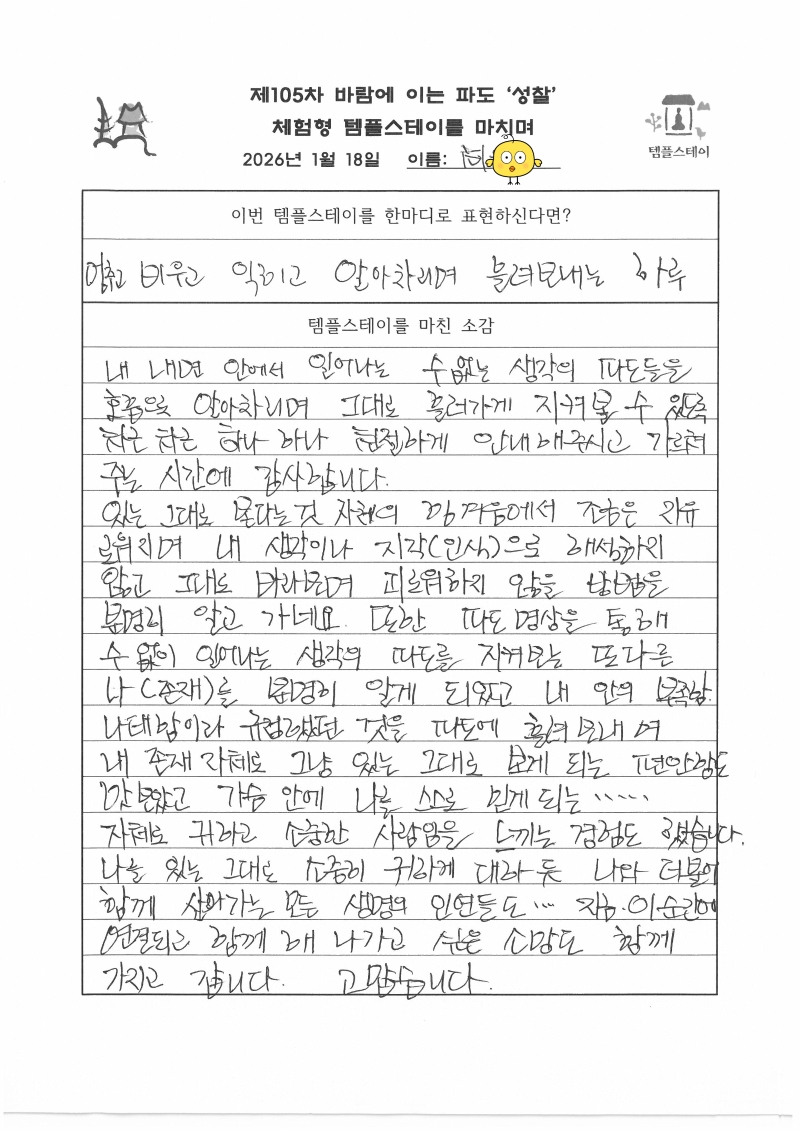 제105차 바람에 이는 파도 ‘성찰’
체험형 템플스테이를 마치며
2026년 1월 18일 이름:
템플스테이
이번 템플스테이를 한마디로 표현하신다면?
멈추고 비우고 익히고 알아차리며 흘려보내는 하루
템플스테이를 마친 소감
내 내면 안에서 일어나는 수없는 생각의 파도들을
호흡으로 알아차리며 그대로 흘러가게 지켜볼 수 있도록
차근 차근 하나 하나 친절하게 안내해주시고 가르쳐
주는 시간에 감사합니다.
있는 그대로 본다는 것 자체의 에서 조금은 자유
로워지며 내 생각이나 지각(인식)으로 해석하지
않고 그대로 바라보며 괴로워하지 않을 방법을
분명히 알고 가네요. 또한 파도 명상을 통해
수 없이 일어나는 생각의 파도를 지켜보는 또다른
나 (존재)를 분명히 알게 되었고 내 안의 부족함.
나태함이라 규정했던 것을 파도에 흘려 보내며
내 존재 자체로 그냥 있는 그대로 보게 되는 편안함도
맛보았고 가슴 안에 나를 스스로 믿게 되는 ‥‥‥
자체로 귀하고 소중한 사람임을 느끼는 경험도 했습니다.
나를 있는 그대로 소중히 귀하게 대하듯 나와 더불어
함께 살아가는 모든 생명의 인연들도 … 지금·이순간에
연결되고 함께 해 나가고 싶은 소망도 함께
가지고 갑니다. 고맙습니다.